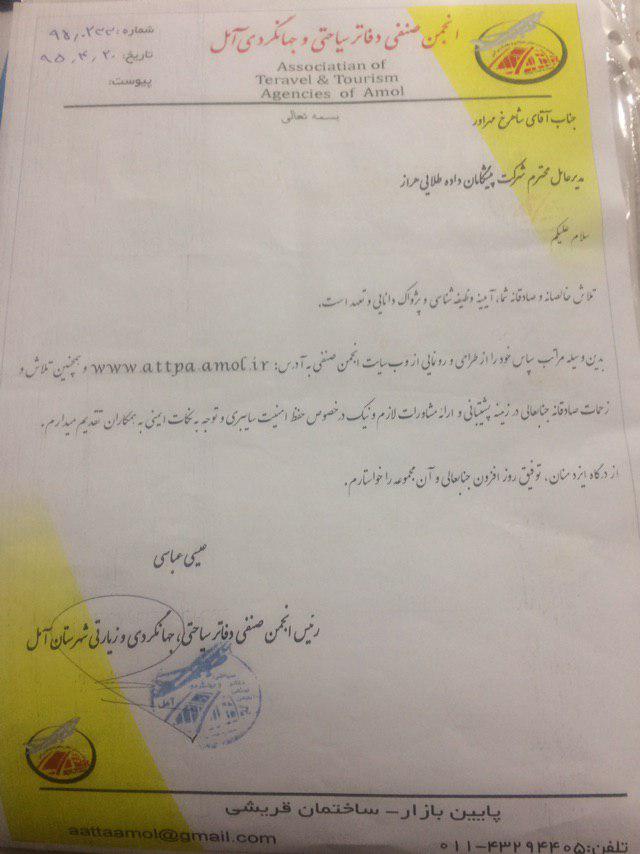 انجمن صنفی دفاتر سیاحتی و جهانگردی آمل
Associatian of
Teravel & Tourism
Agencies of Amol
شماره: ۹۵/۰۲۳۳
تاریخ: ۹۵/۴/۲۰
پیوست:
بسمه تعالی
جناب آقای شاهرخ مهرآور
مدیرعامل محترم شرکت پیشگامان داده طلایی هراز
سلام علیکم
تلاش خالصانه و صادقانه شما، آیینه وظیفه شناسی و پژواک دانایی و تعهد است.
بدین وسیله مراتب سپاس خود را از طراحی و رونمایی از وب سایت انجمن صنفی به آدرس: www.attpa.amol.ir و همچنین تلاش و
زحمات صادقانه جنابعالی در زمینه پشتیبانی و ارائه مشاورات لازم و نیک در خصوص حفظ امنیت سایبری و توجه به نکات ایمنی به همکاران تقدیم میدارم.
از درگاه ایزد منان، توفیق روز افزون جنابعالی و آن مجموعه را خواستارم.
عیسی عباسی
رئیس انجمن صنفی دفاتر سیاحتی، جهانگردی و زیارتی شهرستان آمل
آمل
پایین بازار- ساختمان قریشی
aattaamol@gmail.com
تلفن: ۰۱۱-۴۳۲۹۴۴۰۵